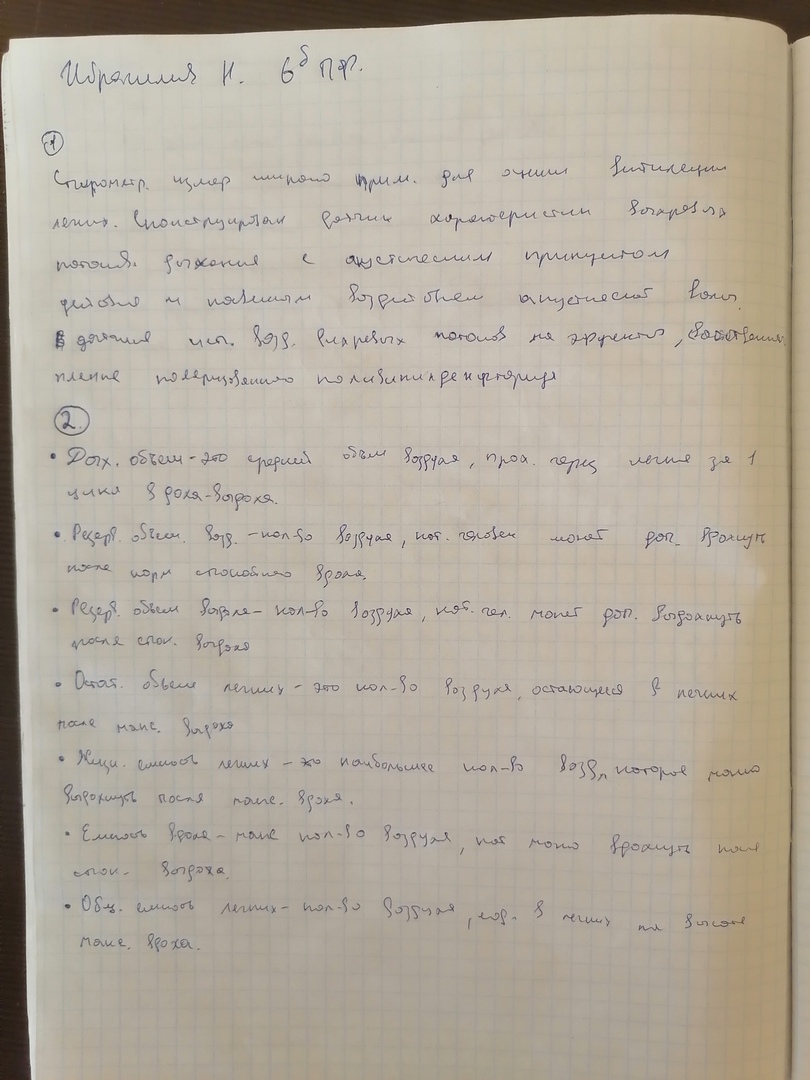 Ибрагимия Н. 6б ПФ.
1
Спирометр. измер широко прим. для оценки вентиляции
легких. Сконструирован датчик характеристик вихревых
потоков. дыхания с акустическим принципом
действия и воздействием акустической волн.
В датчике исп. возд. вихревых потоков на эффектив,
пление поляризованного поливинилденфторида
2.
• Дых. объем - это средний объем воздуха, прох. через легкие за 1
цикл вдоха-выдоха.
• Резерв. объем. возд. - кол-во воздуха, кот. человек может доп. вдохнуть
после норм спокойного вдоха.
• Резерв. объем выдоха - кол-во воздуха, кот. чел. может доп. выдохнуть
после спок. выдоха
• Остат. объем легких - это кол-во воздуха, остающиеся в легких
после макс. выдоха
• Жизн. емкость легких - это наибольшее кол-во возд, которое можно
выдохнуть после макс. вдоха.
• Емкость вдоха - макс кол-во воздуха, кот можно вдохнуть после
спок. выдоха.
• Общ. емкость легких - кол-во воздуха, сод. в легких на высоте
макс. вдоха.